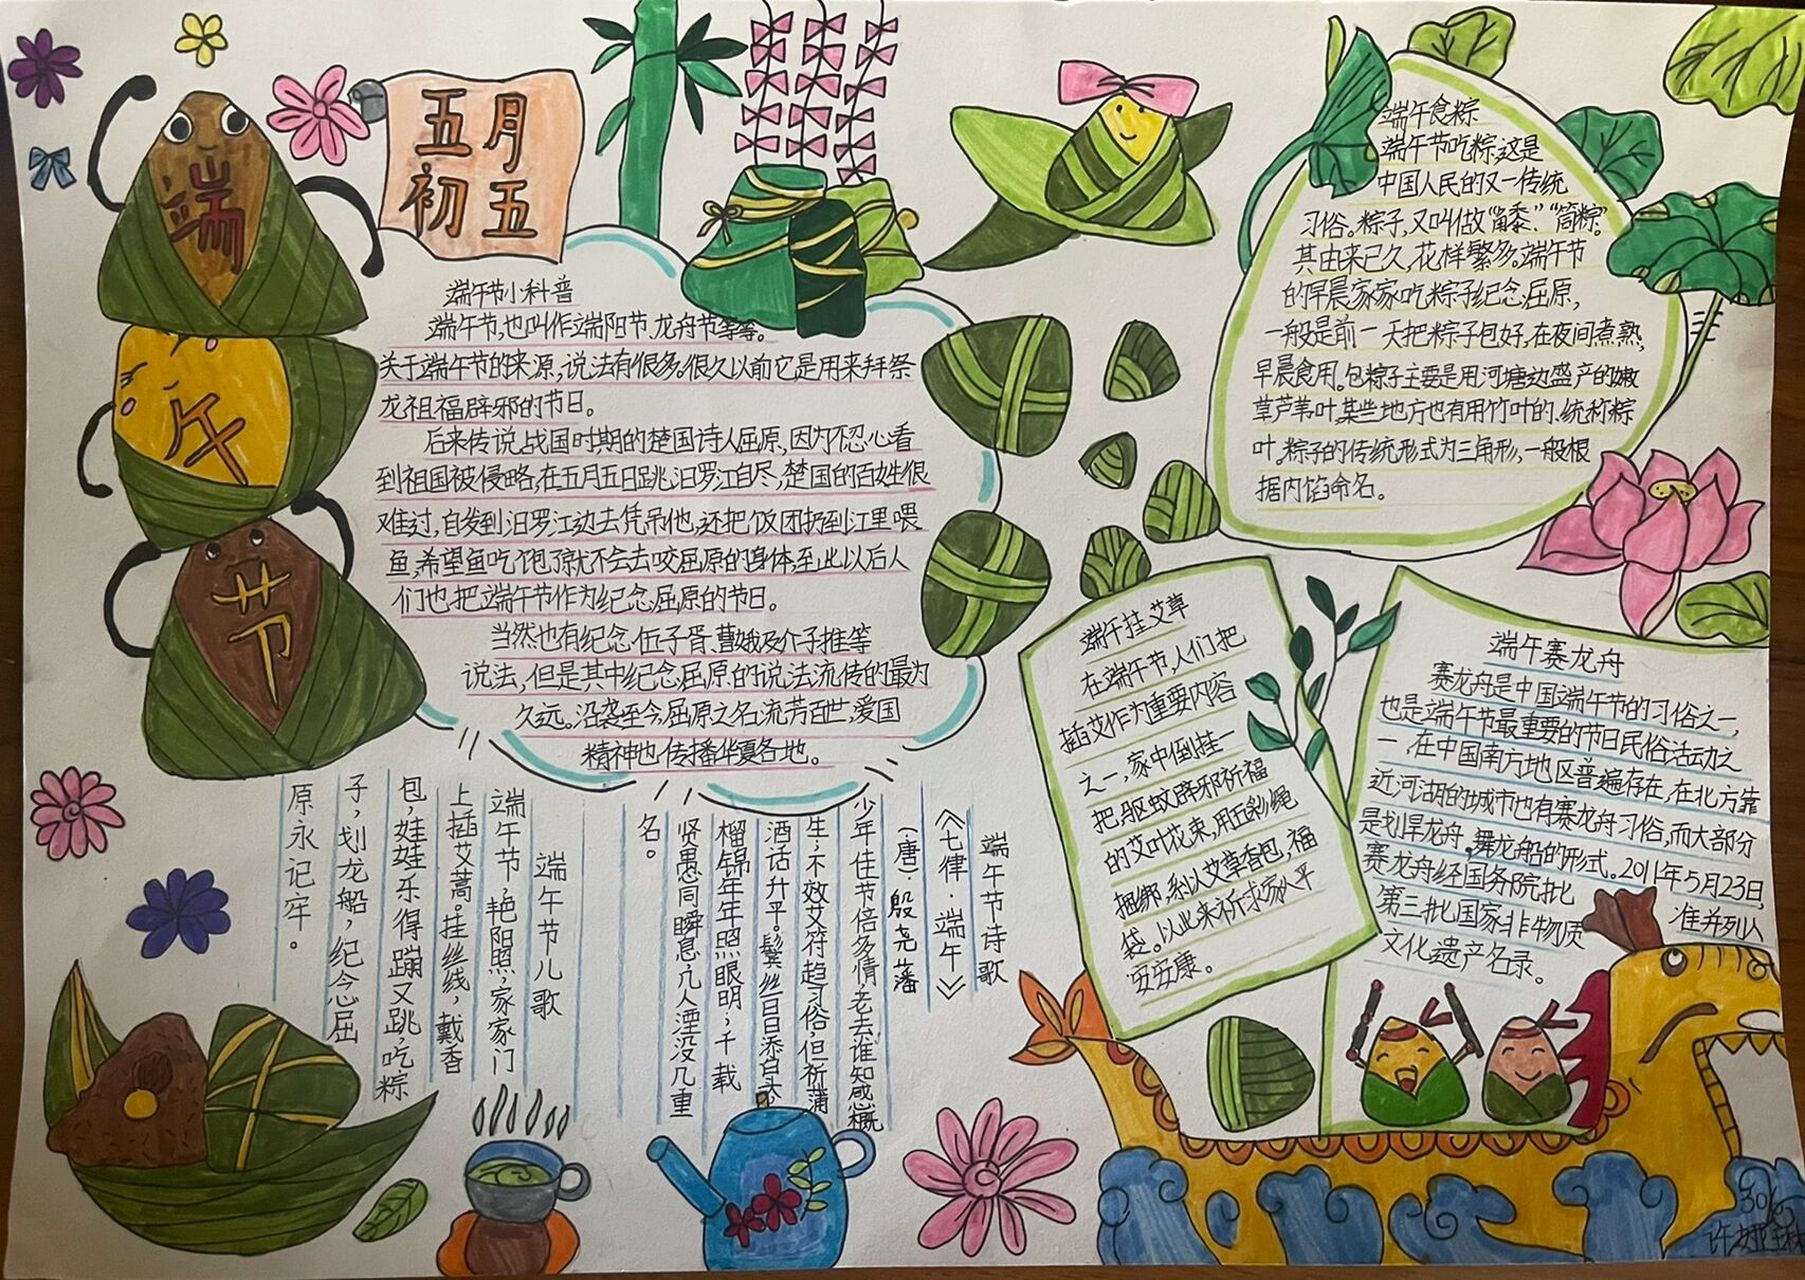 端
午
节
五月
初五
端午节小科普
端午节,也叫作端阳节、龙舟节等等。
关于端午节的来源,说法有很多。很久以前它是用来拜祭
龙祖福辟邪的节日。
后来传说,战国时期的楚国诗人屈原,因为不忍心看
到祖国被侵略,在五月五日跳汨罗江自尽,楚国的百姓很
难过,自发到汨罗江边去凭吊他,还把饭团扔到江里喂
鱼,希望鱼吃饱了就不会去咬屈原的身体,至此以后人
们也把端午节作为纪念屈原的节日。
当然也有纪念伍子胥、曹娥及介子推等
说法,但是其中纪念屈原的说法流传的最为
久远。沿袭至今,屈原之名流芳百世,爱国
精神也传播华夏各地。
端午食粽
端午节吃粽,这是
中国人民的又一传统
习俗。粽子,又叫做“角黍”、“筒粽”。
其由来已久,花样繁多。端午节
的早晨家家吃粽子纪念屈原,
一般是前一天把粽子包好,在夜间煮熟,
早晨食用。包粽子主要是用河塘边盛产的嫩
草芦苇叶,某些地方也有用竹叶的,统称粽
叶。粽子的传统形式为三角形,一般根
据内馅命名。
端午挂艾草
在端午节,人们把
插艾作为重要内容
之一,家中倒挂一
把驱蚊辟邪祈福
的艾叶花束,用五彩绳
捆绑,系以艾草香包,福
袋。以此来祈求家人平
安安康。
端午赛龙舟
赛龙舟是中国端午节的习俗之一,
也是端午节最重要的节日民俗活动之
一,在中国南方地区普遍存在,在北方靠
近河湖的城市也有赛龙舟习俗,而大部分
是划旱龙舟,舞龙船的形式。2011年5月23日,
赛龙舟经国务院批
准并列入
第三批国家非物质
文化遗产名录。
端午节诗歌
《七律·端午》
(唐)殷尧藩
少年佳节倍多情,老去谁知感慨
生;不效艾符趋习俗,但祈蒲
酒话升平。鬓丝日日添白头,
榴锦年年照眼明;千载
贤愚同瞬息,几人湮没几重
名。
端午节儿歌
端午节,艳阳照,家家门
上插艾蒿。挂丝线,戴香
包,娃娃乐得蹦又跳,吃粽
子,划龙船,纪念屈
原永记牢。